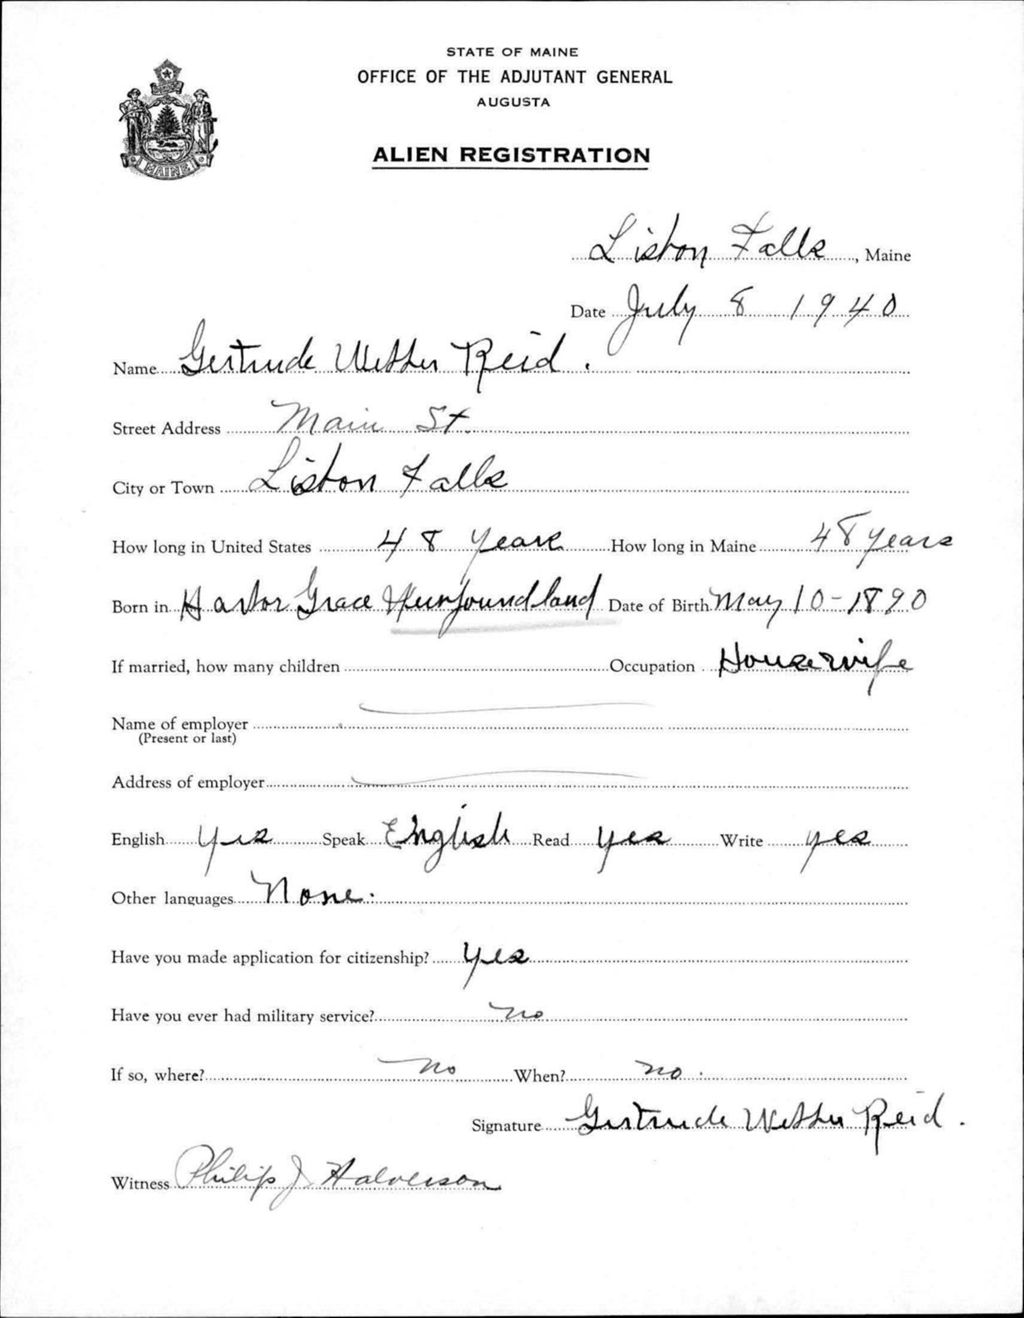 STATE OF MAINE
OFFICE OF THE ADJUTANT GENERAL
AUGUSTA
ALIEN REGISTRATION
MAINE
Lisbon Falls, Maine
Date July 8 1940
Name Gertrude Webber Reid.
Street Address Main St.
City or Town Lisbon Falls
How long in United States 48 years How long in Maine 48 years
Born in Harbor Grace Newfoundland Date of Birth May 10-1890
If married, how many children Occupation Housewife
Name of employer
(Present or last)
Address of employer
English Yes Speak English Read yes Write yes
Other languages None.
Have you made application for citizenship? Yes
Have you ever had military service? no
If so, where? no When? no.
Signature Gertrude Webber Reid.
Witness Philip J Halverson